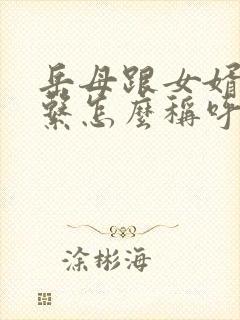 岳母跟女婿
繫怎麼稱呼
涂彬海